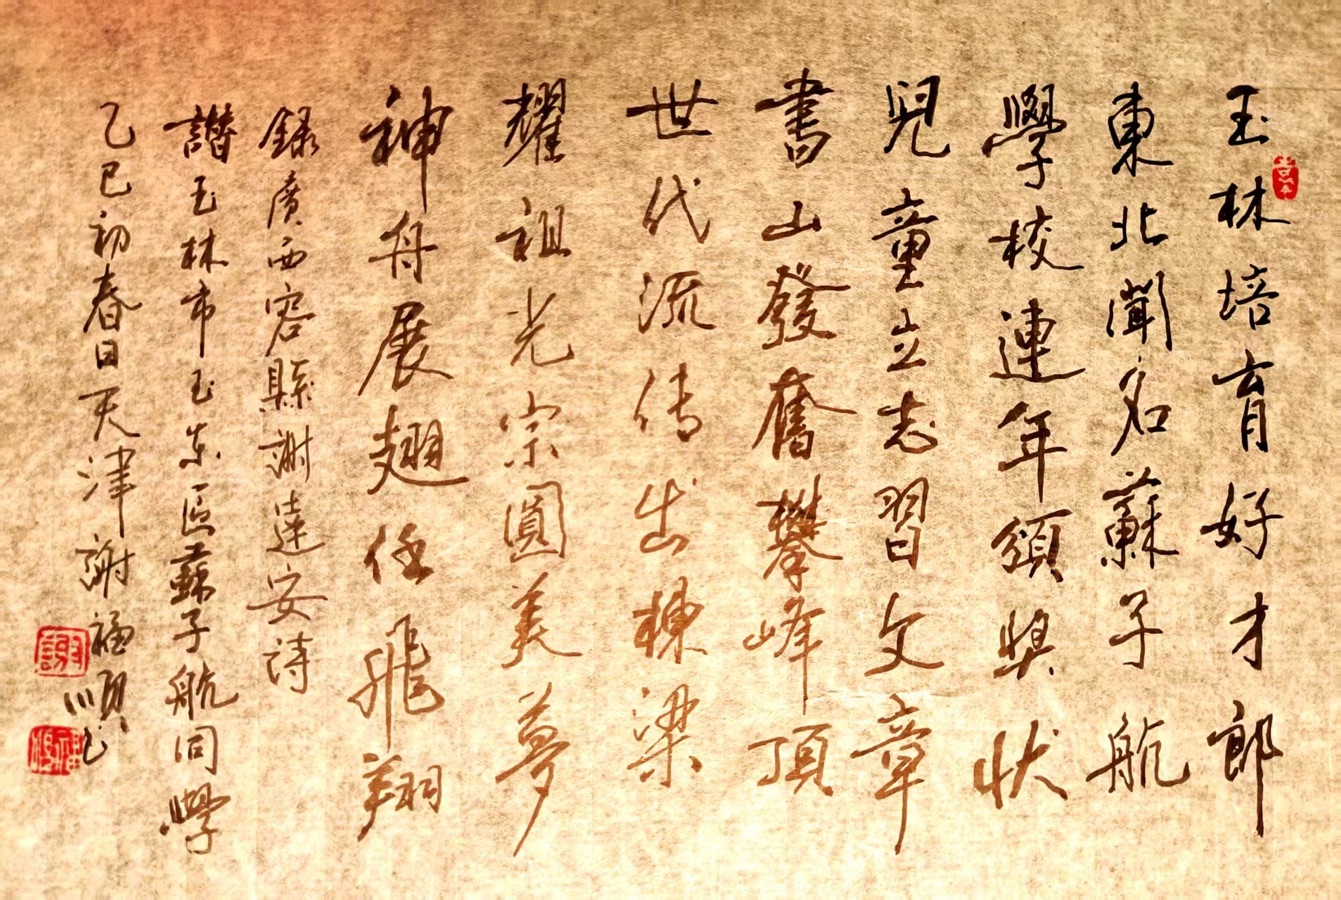 玉林培育好才郎
東北聞名蘇子航
學校連年頒獎狀
兒童立志習文章
書山發奮攀峰頂
世代流传出棟梁
耀祖光宗圓美夢
神舟展翅任飛翔
録廣西容縣謝達安詩
讃玉林市玉东區蘇子航同學
乙巳初春日天津謝福順书
謝